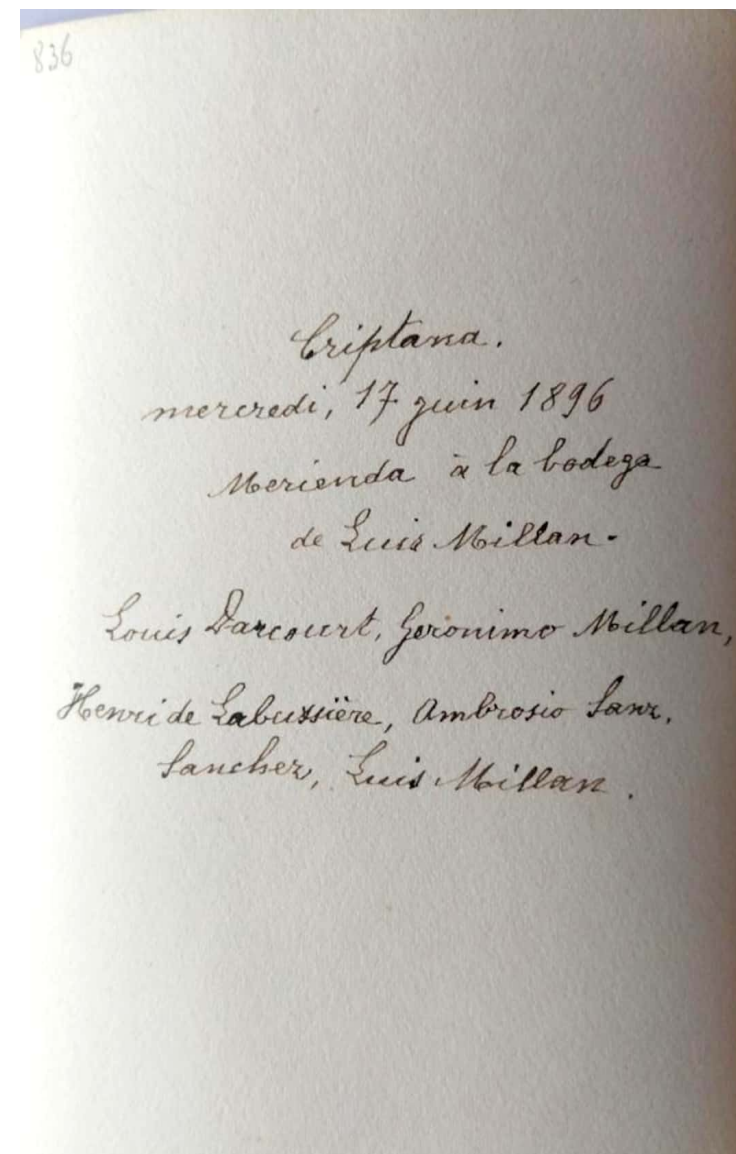 836
Criptana.
mercredi, 17 juin 1896
Merienda à la bodega
de Luis Millan.
Louis Darcourt, Geronimo Millan,
Henri de Labussière, Ambrosio Sanz,
Sanchez, Luis Millan.